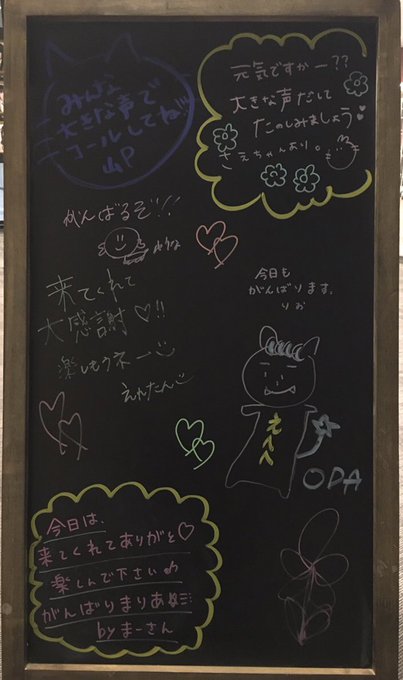 みんな
大きな声で
コールしてね!!
山P
元気ですかー??
大きな声だして
たのしみましょう♥
さえちゃんより。
がんばるぞ!!
来てくれて
大感謝♡!!
楽しもうネー
えれたん
今日も
がんばります。
りお
ODA
今日は、
来てくれてありがと♡
楽しんで下さいね
がんばりまりあ
by まーさん